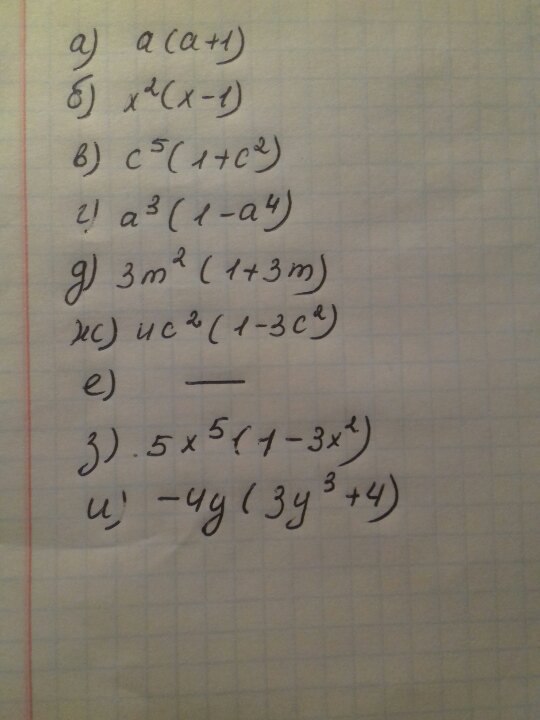 а) a(a+1)
б) x²(x-1)
в) c⁵(1+c²)
г) a³(1-a⁴)
д) 3m²(1+3m)
ж) 4c²(1-3c²)
е) —
з) 5x⁵(1-3x²)
и) -4y(3y³+4)